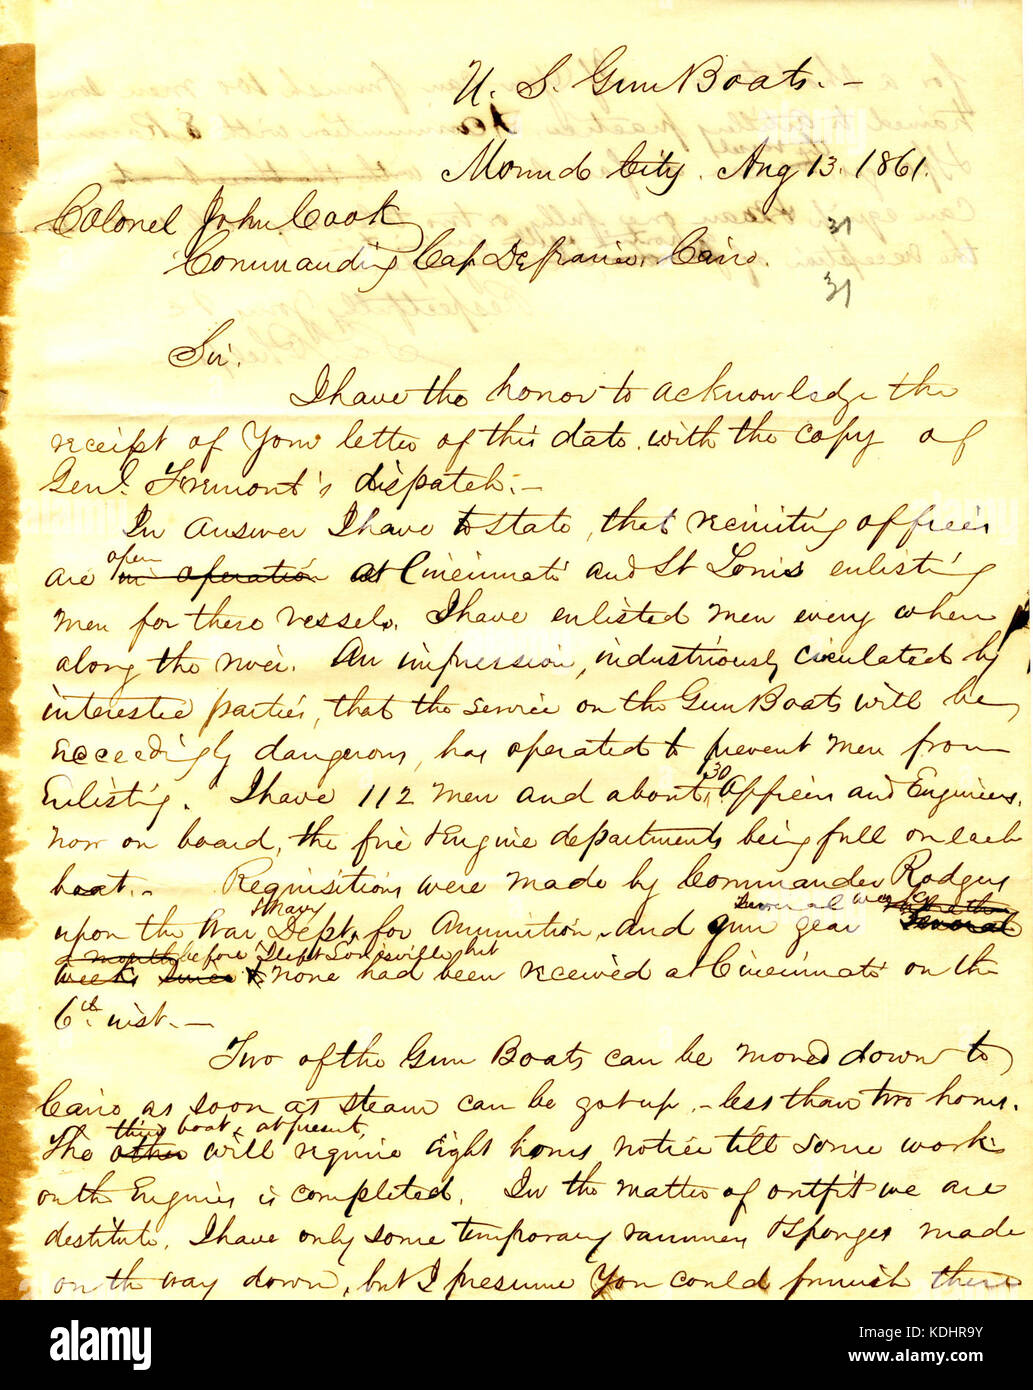 U. S. Gun Boats. –
Mound City. Aug 13. 1861.
Colonel John Cook
31
Commanding Cairo.
31
Sir.
I have the honor to acknowledge the
receipt of Your letter of this date. with the copy of
Genl. Fremont's dispatch. –
In answer I have to state, that recruiting officers
open
are in operation at Cincinnati and St Louis enlisting
men for these vessels. I have enlisted men every where
along the river. An impression, industriously circulated by
interested parties, that the service on the Gun Boats will be
exceedingly dangerous, has operated to prevent men from
30
Enlisting. I have 112 men and about Officers and Engineers.
now on board, the fire & Engine departments being full on each
boat. – Requisitions were made by Commander Rodgers
& Navy several weeks
upon the War Dept. for Ammunition, and gun gear several
a month before I left Louisville but
weeks since & none had been received at Cincinnati on the
6th inst. –
Two of the Gun Boats can be moved down to
Cairo as soon as steam can be got up, – less than two hours.
third boat, at present,
The other will require eight hours notice till some work
on the Engines is completed. In the matter of outfit we are
destitute. I have only some temporary rammers & sponges made
on the way down, but I presume You could furnish these
alamy
Image ID: KDHR9Y
www.alamy.com